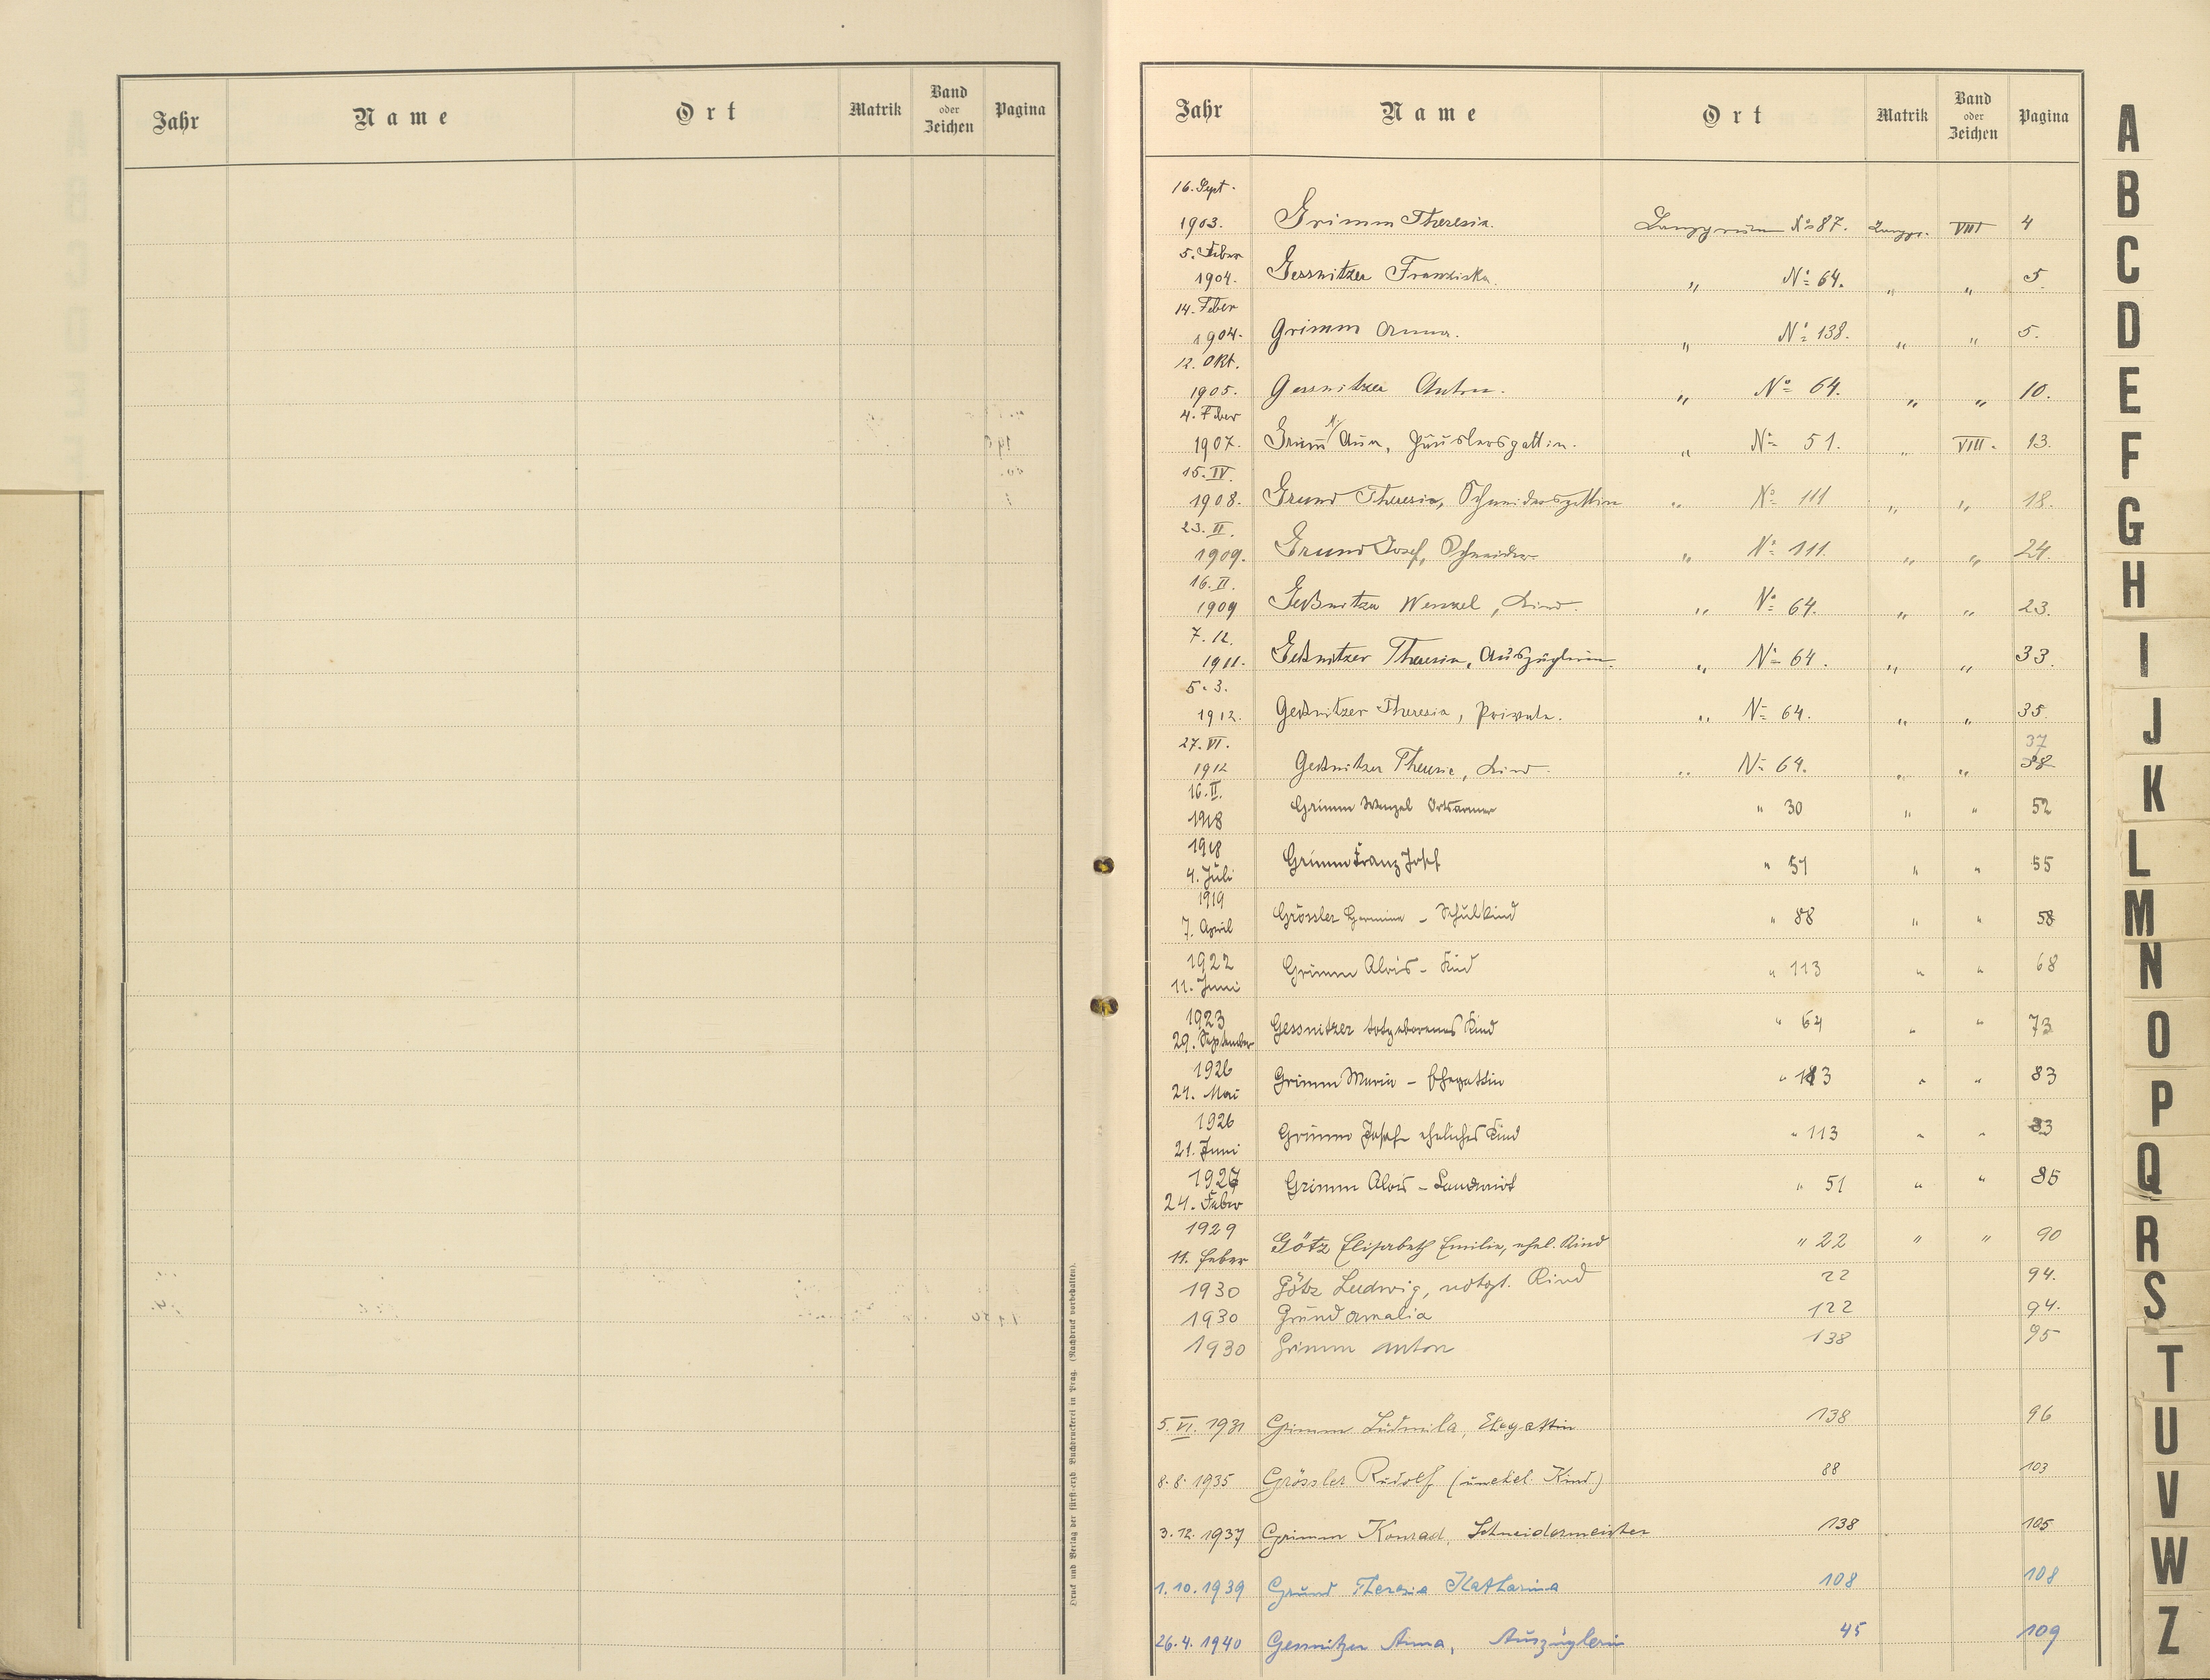 Jahr Name Ort Matrik Band oder Zeichen Pagina
Druck und Verlag der fürst-erzb. Buchdruckerei in Prag. (Nachdruck vorbehalten).
Jahr Name Ort Matrik Band oder Zeichen Pagina
16. Sept.
1903. Grimm Theresia. Langgrün No 87. Langgr. VIII 4
5. Feber
1904. Gessnitzer Franziska. " No 64. " " 5.
14. Feber
1904. Grimm Anna. " No 138. " " 5.
12. Okt.
1905. Gessnitzer Anton. " No 64. " " 10.
4. Feber
1907. Grim̄ Anna, Häuslersgattin. " No 51. " VIII. 13.
15. IV.
1908. Grund Theresia, Schneidersgattin " No 111 " " 18.
23. II.
1909. Grund Josef, Schneider. " No 111. " " 24.
16. II.
1909 Geßnitzer Wenzel, Kind. " No 64. " " 23.
7. 12.
1911. Geßnitzer Theresia, Auszüglerin. " No 64. " " 33.
5. 3.
1912. Geßnitzer Theresia, Private. " No 64. " " 35.
27. VI. 37
1912 Geßnitzer Theresie, Kind. " No 64. " " 38
16. II.
1918 Grimm Wenzel Ortsarmer " 30 " " 52
1918
4. Juli Grimm Franz Josef " 51 " " 55
1919
7. April Grössler Hermine – Schulkind " 88 " " 58
1922
11. Juni Grimm Alois – Kind " 113 " " 68
1923
29. September Gessnitzer totgeborenes Kind " 64 " " 73
1926
21. Mai Grimm Maria – Ehegattin " 113 " " 83
1926
21. Juni Grimm Josef – eheliches Kind " 113 " " 83
1927
24. Feber Grimm Alois – Landwirt " 51 " " 85
1929
11. Feber Götz Elisabeth Emilie, ehel. Kind " 22 " " 90
1930 Götz Ludwig, notget. Kind 22 94.
1930 Grund Amalia 122 94.
1930 Grimm Anton 138 95
5. VI. 1931 Grimm Ludmila, Ehegattin 138 96
8. 8. 1935 Grössler Rudolf (unehel. Kind) 88 103
3. 12. 1937 Grimm Konrad, Schneidermeister 138 105
1. 10. 1939 Grund Theresia Katharina 108 108
26. 4. 1940 Gessnitzer Anna, Auszüglerin 45 109
A
B
C
D
E
F
G
H
I
J
K
L
M
N
O
P
Q
R
S
T
U
V
W
Z